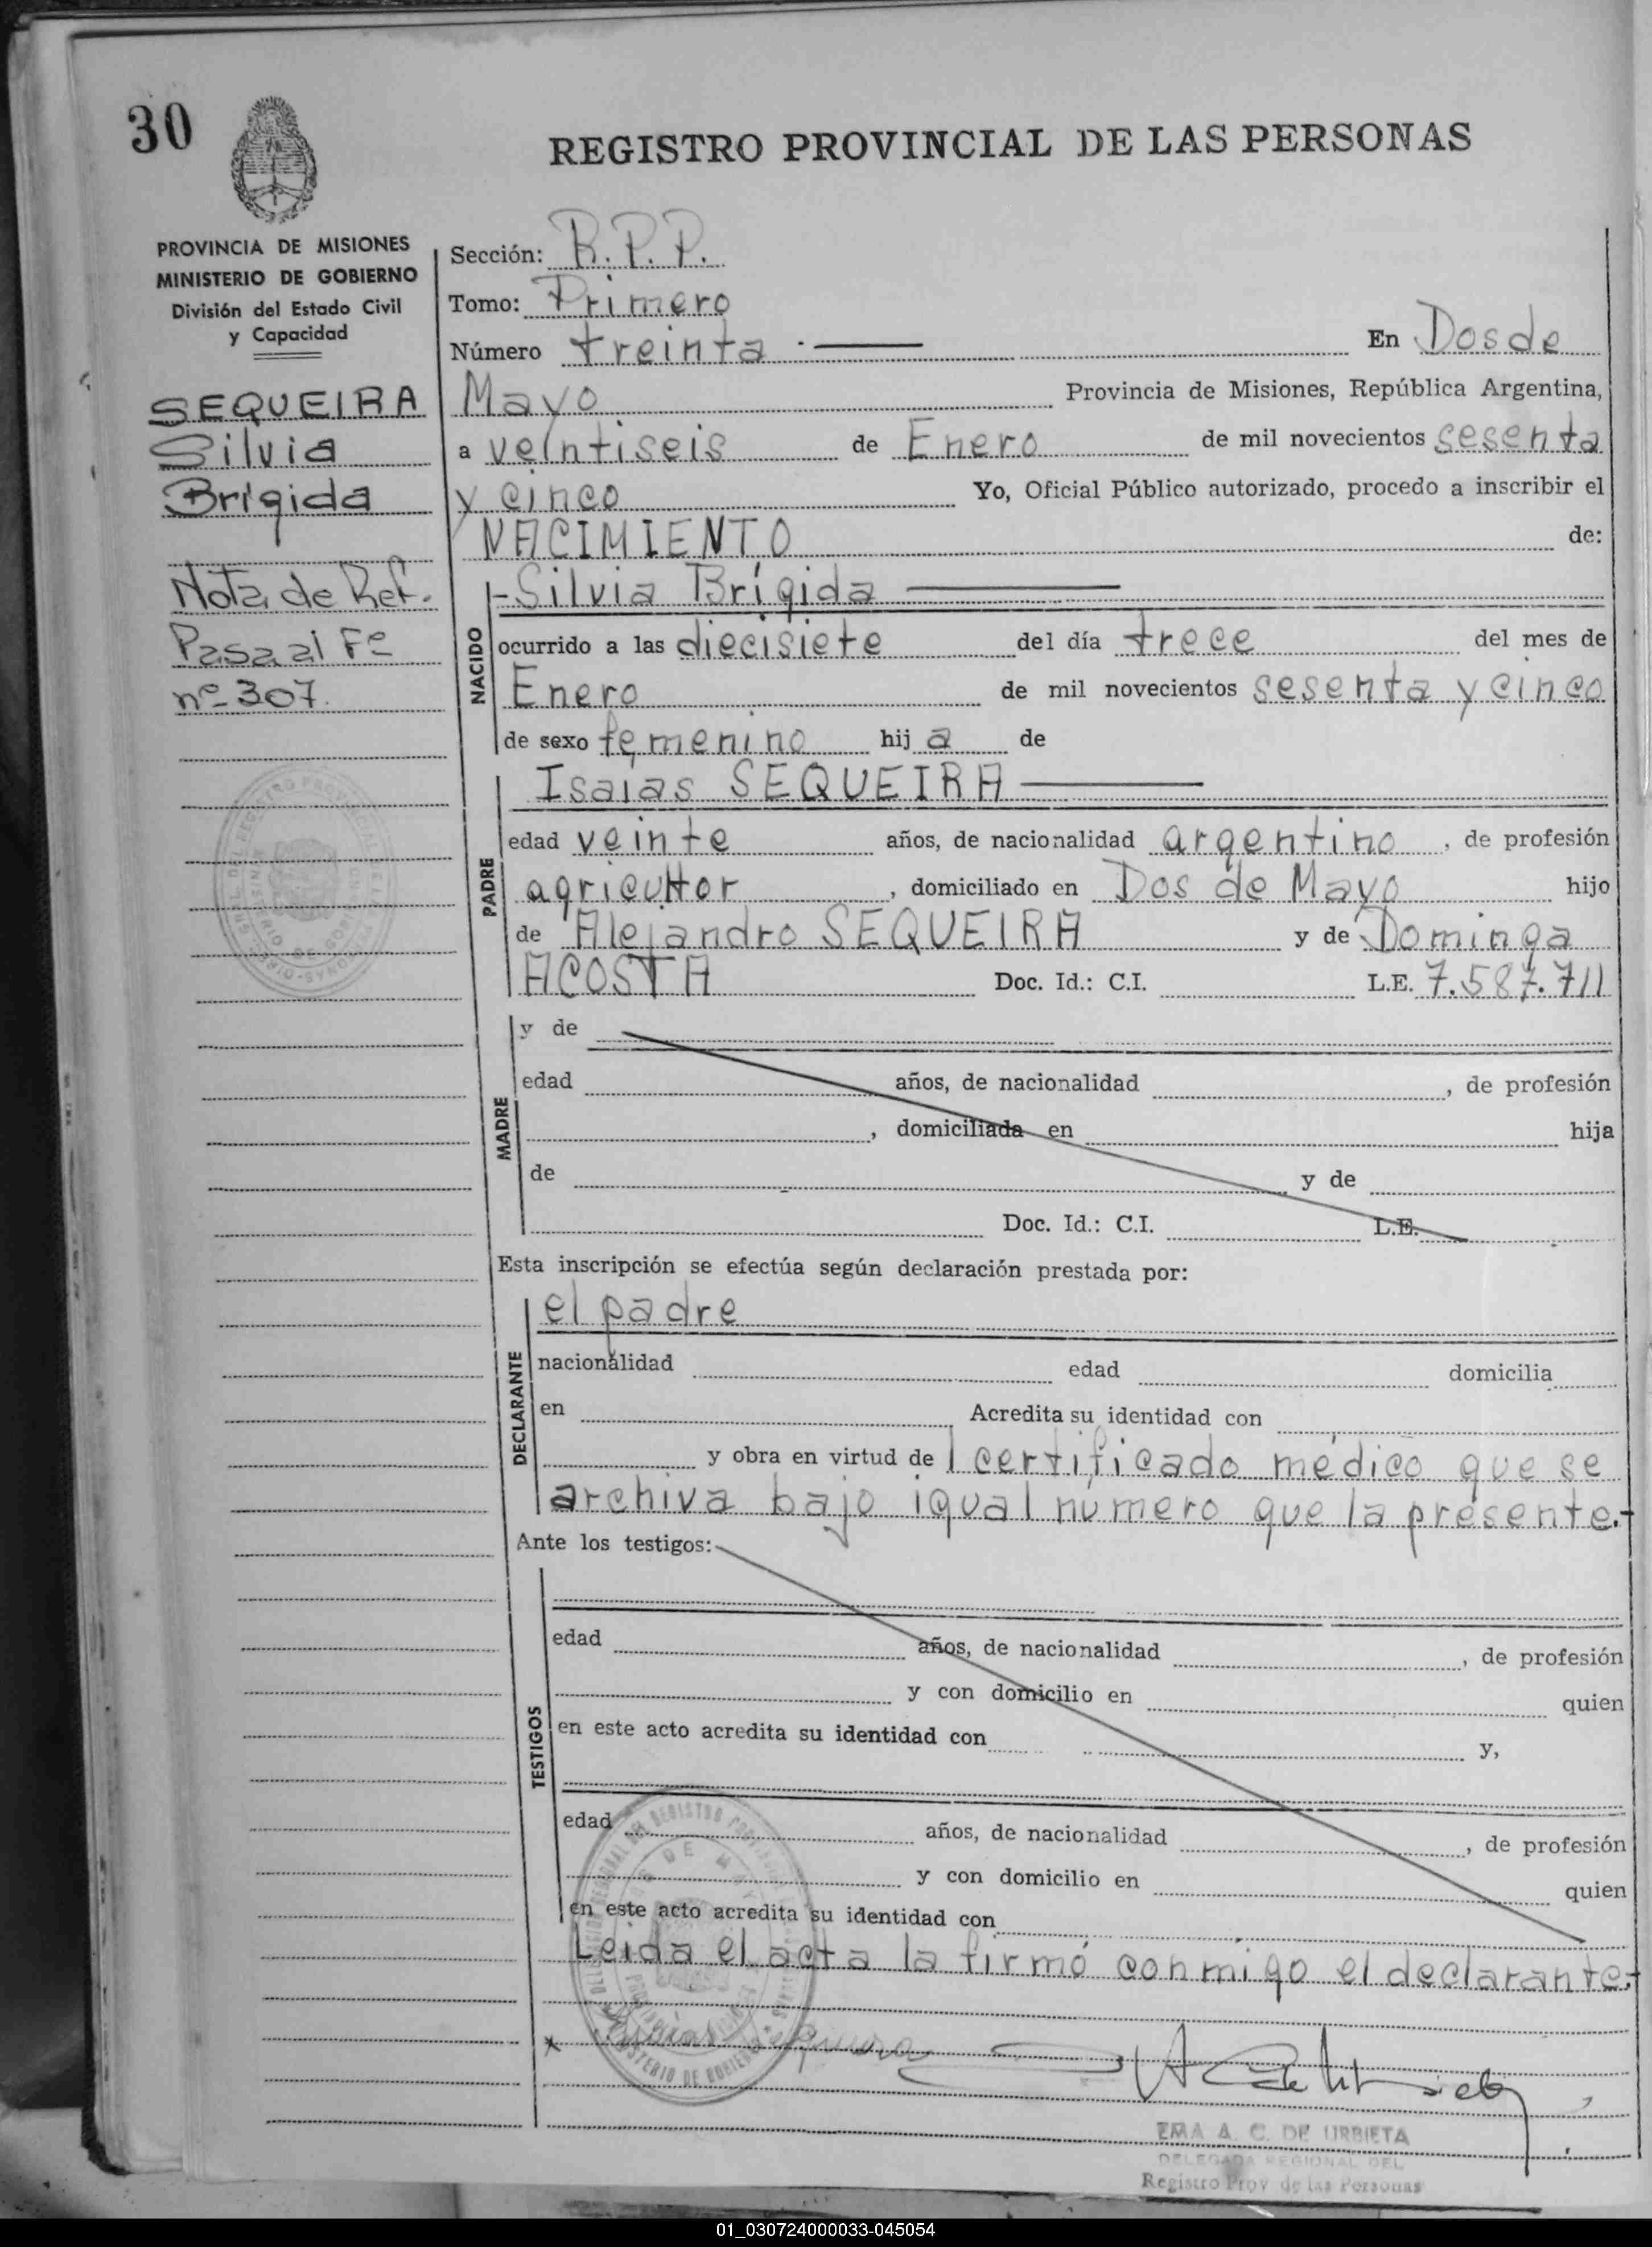 30
REGISTRO PROVINCIAL DE LAS PERSONAS
PROVINCIA DE MISIONES
MINISTERIO DE GOBIERNO
División del Estado Civil
y Capacidad
SEQUEIRA
Silvia
Brígida
Nota de Ref.
Pasa al Fº
nº 307.
Sección: R.P.P.
Tomo: Primero
Número treinta . En Dos de
Mayo Provincia de Misiones, República Argentina,
a veintiseis de Enero de mil novecientos sesenta
y cinco Yo, Oficial Público autorizado, procedo a inscribir el
NACIMIENTO de:
NACIDO
-Silvia Brígida
ocurrido a las diecisiete del día trece del mes de
Enero de mil novecientos sesenta y cinco
de sexo femenino hij a de
PADRE
Isaias SEQUEIRA
edad veinte años, de nacionalidad argentino, de profesión
agricultor, domiciliado en Dos de Mayo hijo
de Alejandro SEQUEIRA y de Dominga
ACOSTA Doc. Id.: C.I. L.E. 7.587.711
MADRE
y de
edad años, de nacionalidad , de profesión
, domiciliada en hija
de y de
Doc. Id.: C.I. L.E.
Esta inscripción se efectúa según declaración prestada por:
DECLARANTE
el padre
nacionalidad edad domicilia
en Acredita su identidad con
y obra en virtud de l certificado médico que se
archiva bajo igual numero que la presente.-
Ante los testigos:
TESTIGOS
edad años, de nacionalidad , de profesión
y con domicilio en quien
en este acto acredita su identidad con y,
edad años, de nacionalidad , de profesión
y con domicilio en quien
en este acto acredita su identidad con
Leida el acta la firmó conmigo el declarante.-
Isaias Sequeira
EMA A. C. DE URBIETA
DELEGADA REGIONAL DEL
Registro Prov de las Personas
01_030724000033-045054